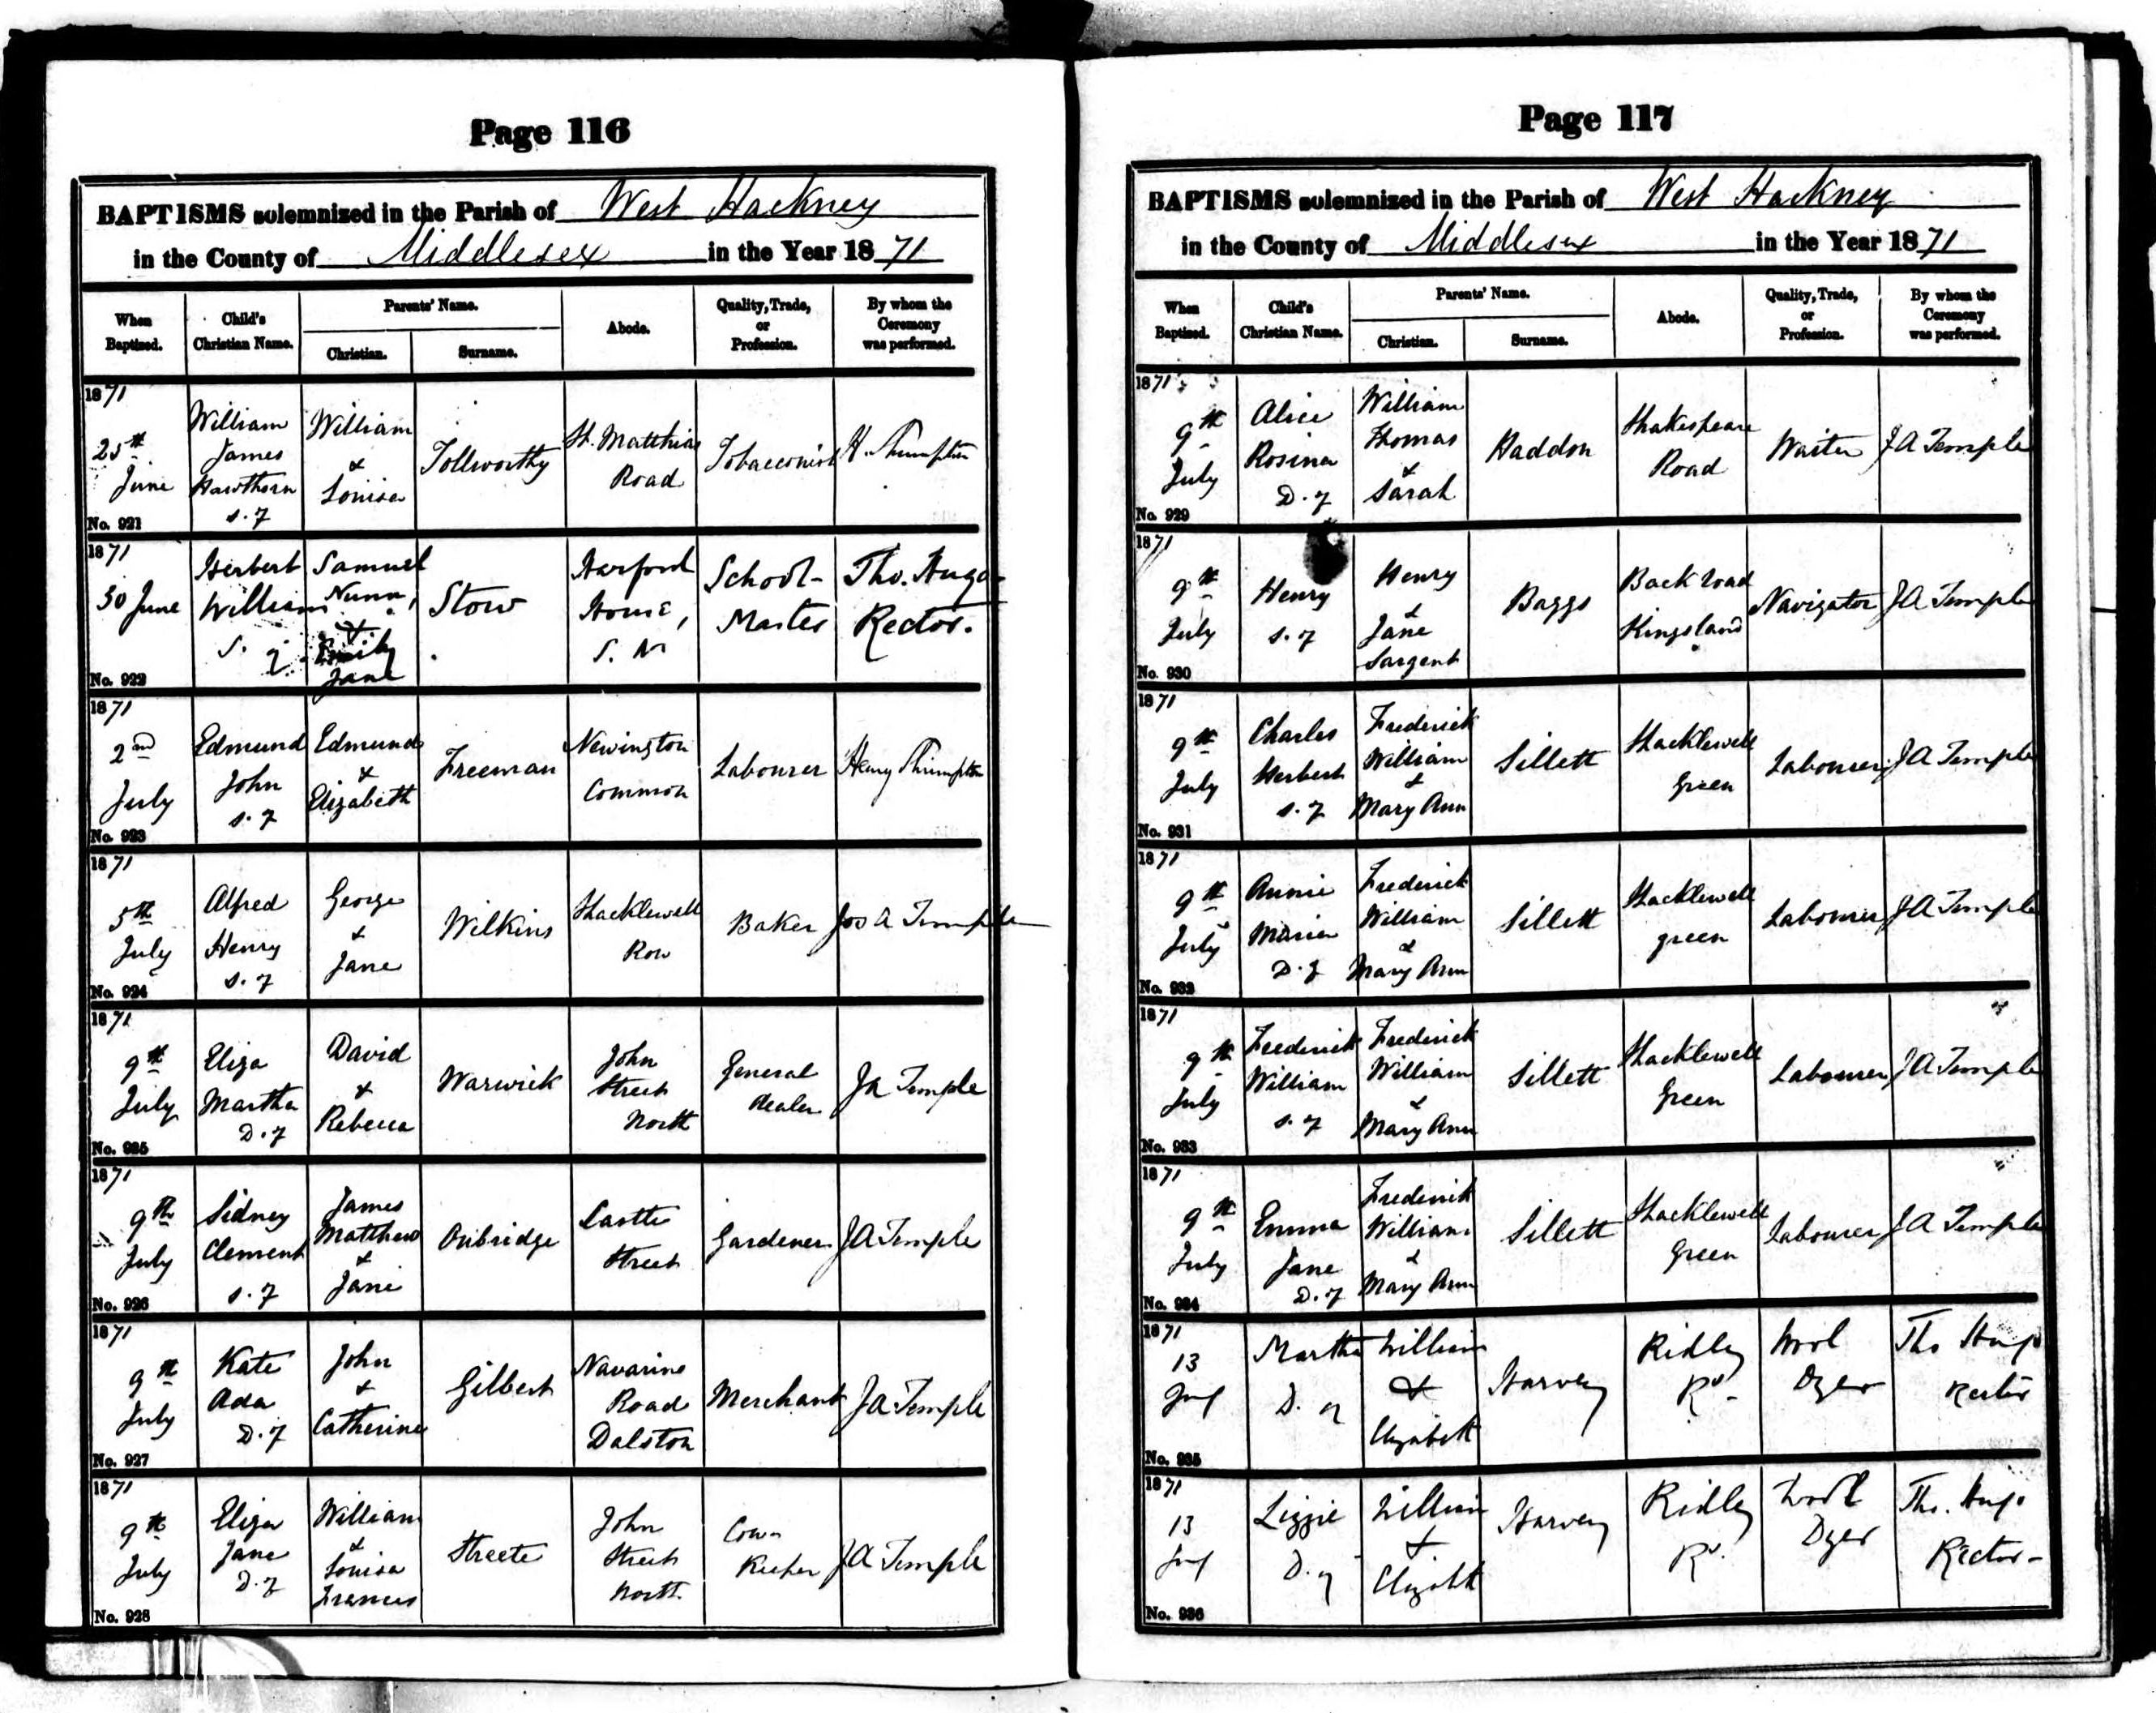 Page 116
BAPTISMS solemnized in the Parish of West Hackney
in the County of Middlesex in the Year 1871
When Baptized.
Child's Christian Name.
Parents' Name.
Christian.
Surname.
Abode.
Quality, Trade, or Profession.
By whom the Ceremony was performed.
1871
25th June
No. 921
William James Hawthorn s. of
William & Louisa
Tollworthy
St. Matthias Road
Tobacconist
H. Thrumpton
1871
30 June
No. 922
Herbert William S. of
Samuel Nunn, & Emily Jane
Stow
Harford House, S. N
School-Master
Tho. Hugo Rector.
1871
2nd July
No. 923
Edmund John s. of
Edmund & Elizabeth
Freeman
Newington Common
Labourer
Henry Thrumpton
1871
5th July
No. 924
Alfred Henry s. of
George & Jane
Wilkins
Shacklewell Row
Baker
Jos A Temple
1871
9th July
No. 925
Eliza Martha D. of
David & Rebecca
Warwick
John Street North
General dealer
JA Temple
1871
9th July
No. 926
Sidney Clement s. of
James Matthew & Jane
Onbridge
Castle Street
Gardener
JA Temple
1871
9th July
No. 927
Kate Ada D. of
John & Catherine
Gilbert
Navarino Road Dalston
Merchant
JA Temple
1871
9th July
No. 928
Eliza Jane D. of
William & Louisa Frances
Streete
John Street North
Cow-Keeper
JA Temple
Page 117
BAPTISMS solemnized in the Parish of West Hackney
in the County of Middlesex in the Year 1871
When Baptized.
Child's Christian Name.
Parents' Name.
Christian.
Surname.
Abode.
Quality, Trade, or Profession.
By whom the Ceremony was performed.
1871
9th July
No. 929
Alice Rosina D. of
William Thomas & Sarah
Haddon
Shakespeare Road
Waiter
JA Temple
1871
9th July
No. 930
Henry s. of
Henry & Jane Sargent
Baggs
Back road Kingsland
Navigator
JA Temple
1871
9th July
No. 931
Charles Herbert s. of
Frederick William & Mary Ann
Sillett
Shacklewell Green
Labourer
JA Temple
1871
9th July
No. 932
Annie Maria D. of
Frederick William & Mary Ann
Sillett
Shacklewell green
Labourer
JA Temple
1871
9th July
No. 933
Frederick William s. of
Frederick William & Mary Ann
Sillett
Shacklewell Green
Labourer
JA Temple
1871
9th July
No. 934
Emma Jane D. of
Frederick William & Mary Ann
Sillett
Shacklewell Green
Labourer
JA Temple
1871
13 July
No. 935
Martha D. of
William & Elizabeth
Harvey
Ridley Rd.
Wool Dyer
Tho Hugo Rector
1871
13 July
No. 936
Lizzie D. of
William & Elizabeth
Harvey
Ridley Rd.
Wool Dyer
Tho. Hugo Rector-